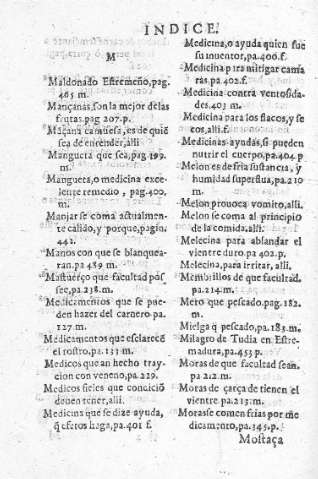 INDICE.
M
Maldonado Estremeño, pag.
465 m.
Mançanas, son la mejor de las
frutas. pag 207. p.
Maçana camuesa, es de quiẽ
sea de entender, alli
Manguera que sea, pag. 399.
m.
Manguera, o medicina exce-
lente remedio, pag. 400.
m.
Manjar se coma actualmen-
te calido, y porque, pagin.
442.
Manos con que se blanquea-
ran. pa 489 m.
Mastuerço que facultad pos-
see, pa. 238. m.
Medicamentos que se pue-
den hazer del carnero pa.
127 m.
Medicamentos que esclarecē
el rostro, pa. 133 m.
Medicos que an hecho tray-
cion con veneno, pa. 229.
Medicos fieles que condiciō
deuen tener, alli.
Medicina que se dize ayuda,
q̃ efetos haga, pa. 401 f.
Medicina, o ayuda quien fue
su inuentor, pa. 400. f.
Medicina para mitigar cama
ras pa 402. f.
Medicina contra ventosida-
des. 403 m.
Medicina para los flacos, y se
cos, alli. f.
Medicinas ayudas, si pueden
nutrir el cuerpo, pa. 404. p
Melon es de fria sustancia, y
humidad superflua, pa. 210
m.
Melon prouoca vomito, alli.
Melon se coma al principio
de la comida. alli.
Melecina para ablandar el
vientre duro pa 402. p.
Melecina, para irritar, alli.
Membrillos de que facultad.
pa 214. m.
Mero que pescado. pag. 182.
m.
Mielga q̃ pescado, pa. 183. m.
Milagro de Tudia en Estre-
madura, pa. 453 p.
Moras de que facultad sean.
pa 212. m.
Moras de çarça detienen el
vientre pa. 213. m.
Moras se comen frias por me
dicamento, pa. 345. p.
Mostaça